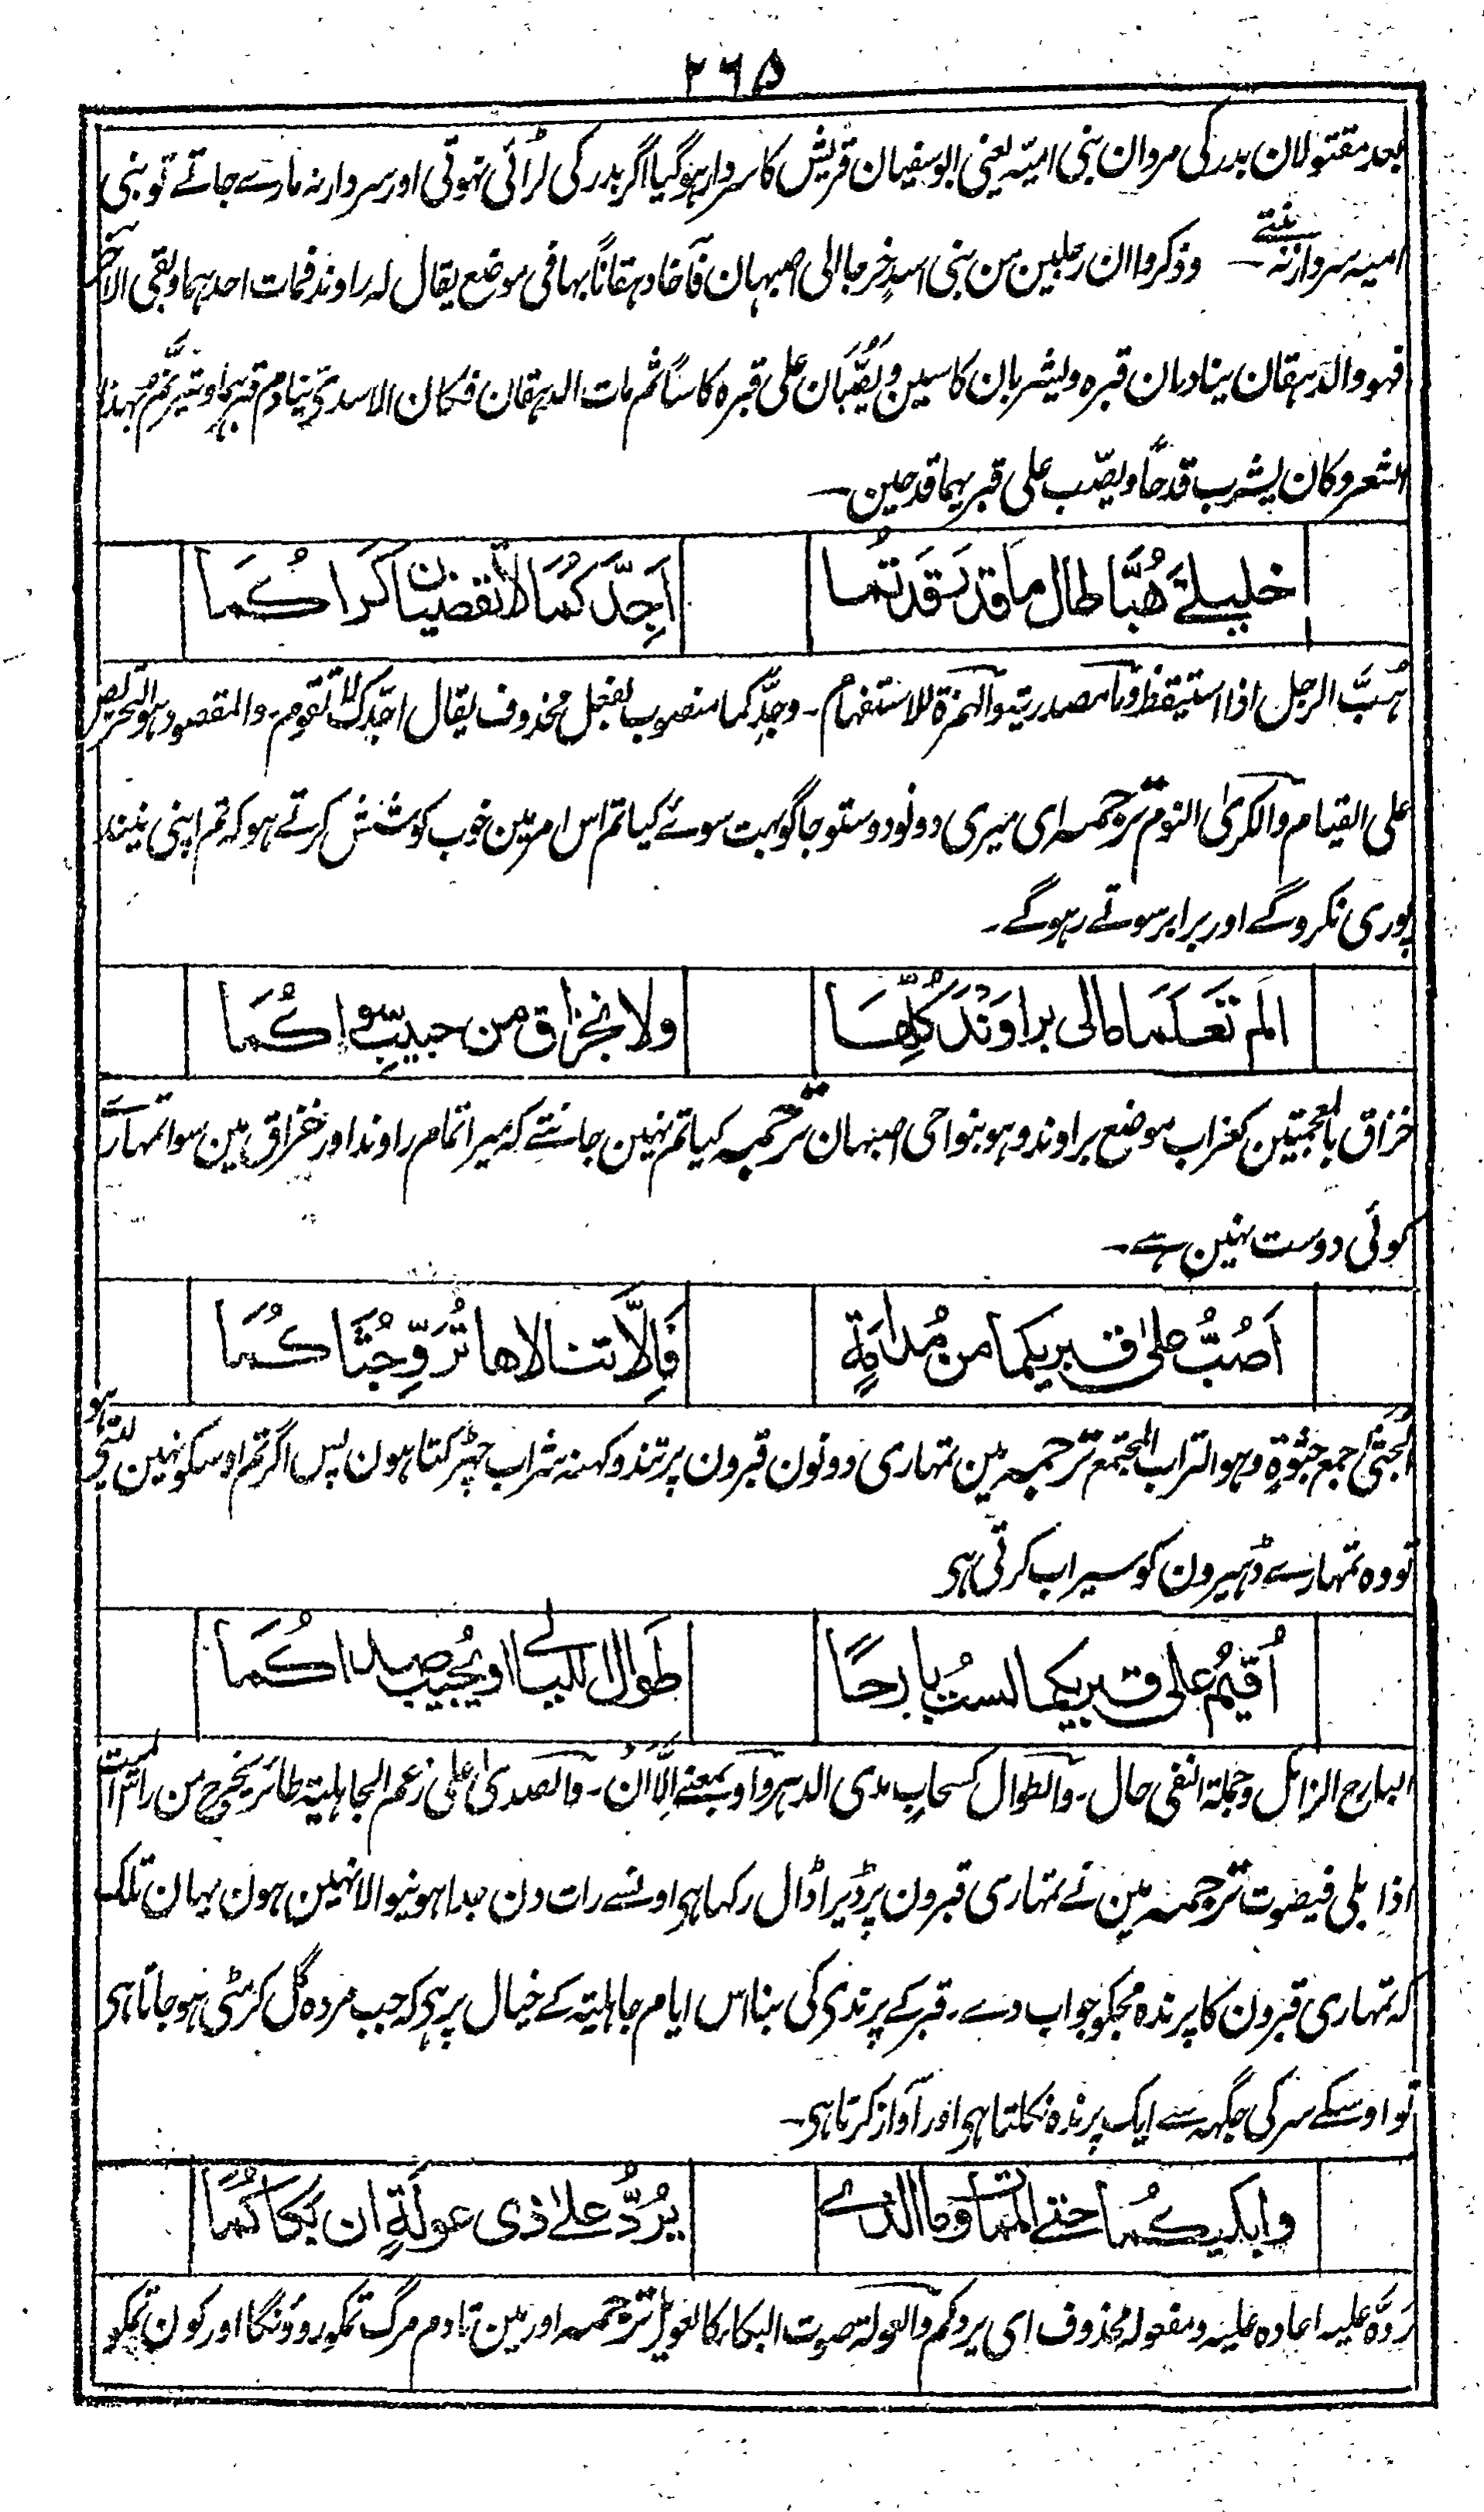 ۲۶۵
بعد مقتولان بدر کی مردان بنی امیّہ یعنی ابو سفیان قریش کا سردار ہو گیا اگر بدر کی لڑائی نہوتی اور سردار نہ مارے جاتے تو بنی
امیہ سردار نہ بنتے ۔ وذکروا ان رجلین من بنی اسدٍ خرجا الی اصبہان فآخا دہقاناً بہا فی موضع یقال لہ راوند فمات احدہما وبقی الآخر
فہو والدہقان ینادمان قبرہ ویشربان کاسین ویَصُبَّان علی قبرہ کاساً ثم مات الدہقان فکان الاسدیّ ینادم قبریہما ویترنّم بہذا
الشعر وکان یشرب قدحاً ویصُب علی قبریہما قدحین۔
خلیلیَّ ھُبَّا طال ما قد رَقَدتُما
اَجِدَّکُمَا لا تَقضیان کَرَاکُمَا
ہَبَّ الرجل اذا استیقظ وما مصدریۃ والہمزۃ للاستفہام۔ وجِدَّکما منصوب بفعل محذوف یقال اجِدَّک لا تقوم۔ والمقصود ہو التحریض
علی القیام والکریٰ النوم ترجمہ ای میری دونو دوستو جاگو بہت سوئے کیا تم اس امر مین خوب کوشش کرتے ہو کہ تم اپنی نیند
پوری نکروگے اور برابر سوتے رہوگے۔
الَم تَعلَمَا مالی براوَندَ کُلِّھَا
ولا بخزاق من حبیبٍ سِواکُمَا
خزاق بالمعجمتین کغراب موضع براوند وہو بنواحی اصبہان ترجمہ کیا تم نہین جانتے کہ میرا تمام راوند اور خزاق مین سوا تمہارے
کوئی دوست نہین ہے۔
اَصُبُّ علیٰ قبریکما من مُدامَةٍ
فَاِلّا تنالاھا تُرَوِّ جُثَاکُمَا
الجُثیٰ جمع جثوۃ وہو التراب المجتمع ترجمہ مین تمہاری دونون قبرون پر تند و کہنہ شراب چھڑکتا ہون پس اگر تم اوسکو نہین لیتے ہو
تو وہ تمہارے ڈہیرون کو سیراب کرتی ہی
اُقیمُ علیٰ قبریکما لستُ بارحًا
طَوال اللیالی او یُجیبَ صداکُمَا
البارح الزائل وجملۃ النفی حال۔ والطوال کسحابٍ مدی الدہر واو بمعنے اِلّا اَن۔ والصدیٰ علی زعم الجاہلیۃ طائر یخرج من راس المیت
اذا بلی فیصوت ترجمہ مین نے تمہاری قبرون پر ڈیرا ڈال رکہا ہی اونسے رات دن جدا ہونیوالا نہین ہون یہان تلک
کہ تمہاری قبرون کا پرندہ مجکو جواب دے۔ قبر کے پرندی کی بنا اس ایام جاہلیۃ کے خیال پر ہی کہ جب مردہ گل کر مٹی ہو جاتا ہی
تو اوسکے سر کی جگہہ سے ایک پرندہ نکلتا ہی اور آواز کرتا ہی۔
وابکیکُما حتی الممات وما الذے
یُرُدُّ علےٰ ذی عولَةٍ ان بکاکُمَا
ردّہ علیہ اعادہ علیہ ومفعولہ محذوف ای یردکم والعولۃ صوت البکاء کالعویل ترجمہ اور مین تا دم مرگ تمکو روؤنگا اور کون تمکو